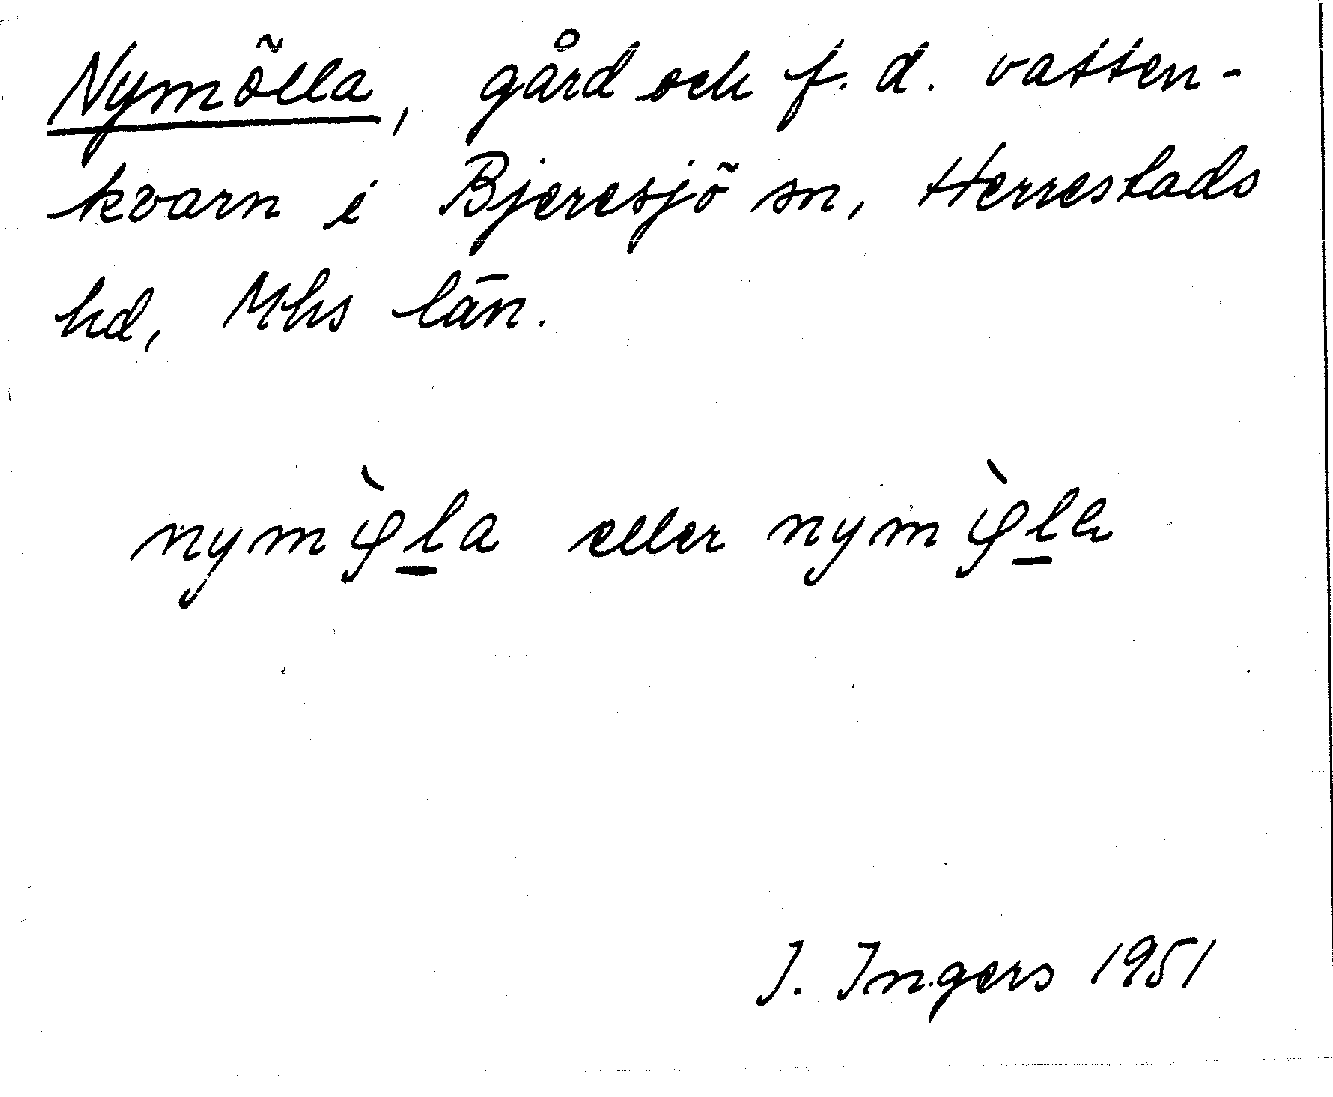 Nymölla, gård och f. d. vatten-
kvarn i Bjeresjö sn, Herrestads
hd, Mhs län.
eller
I. Ingers 1951